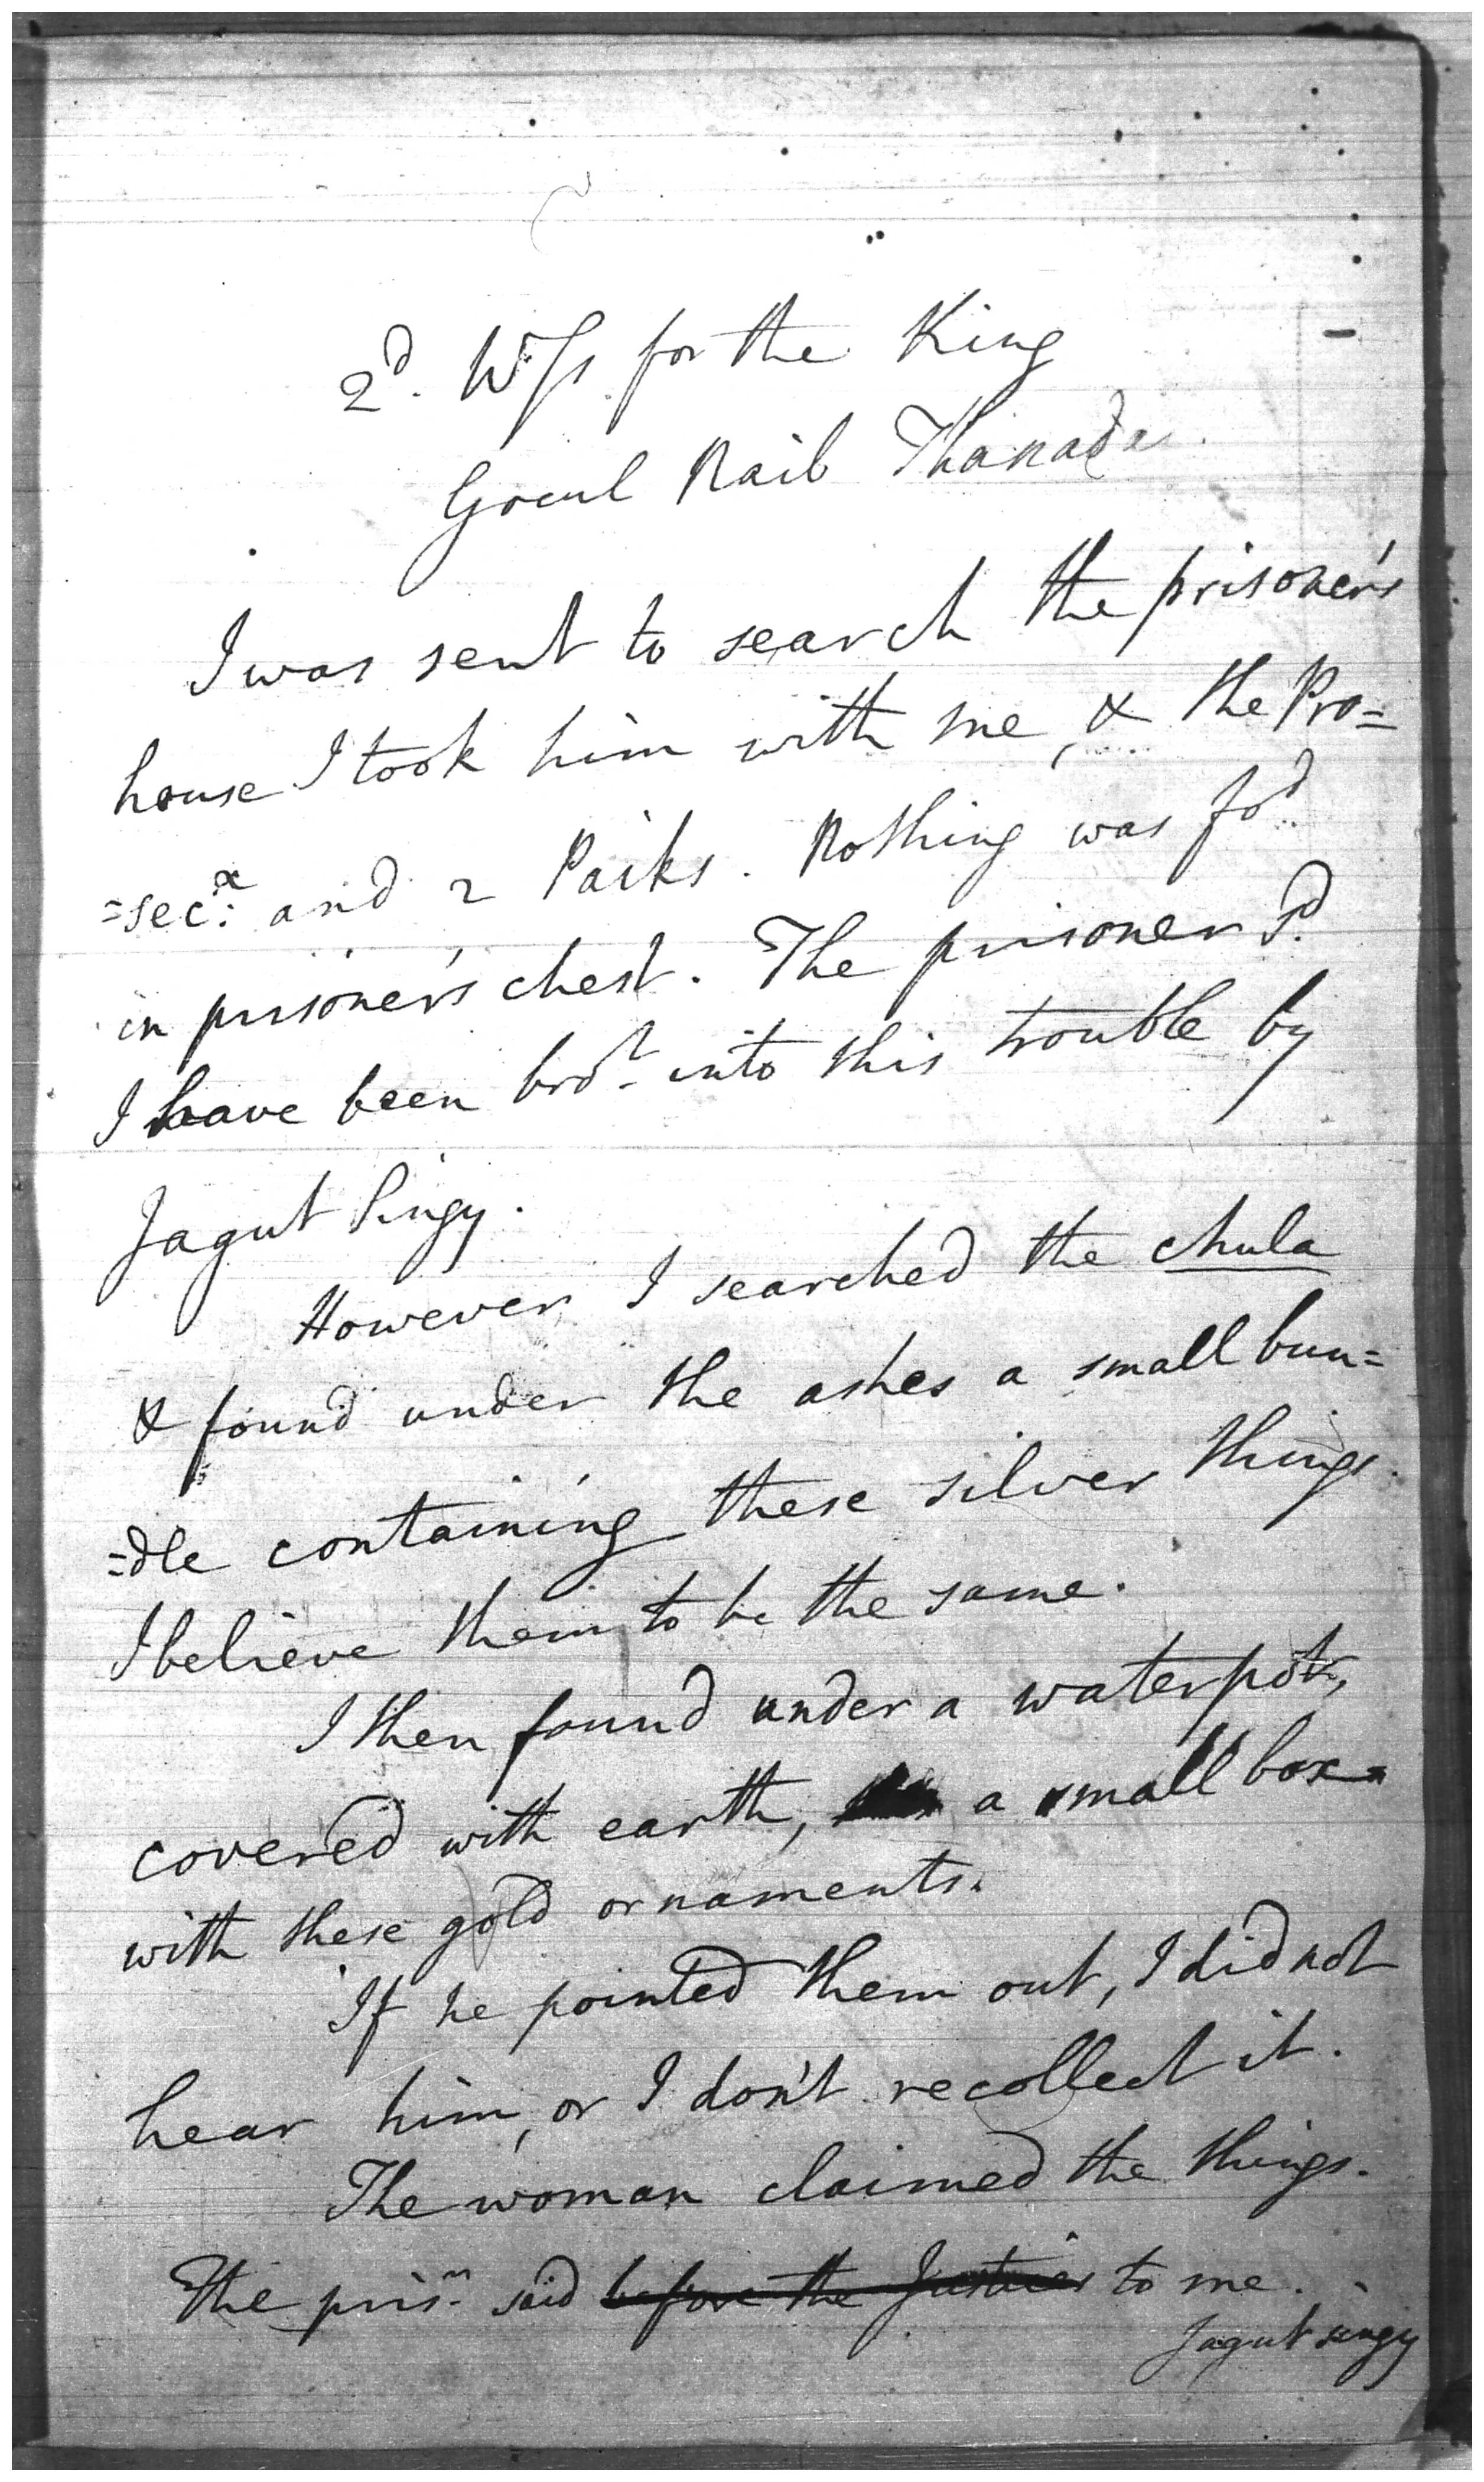 2d. Wss for the King
Gocul Naib Thanada
I was sent to search the prisoner's
house I took him with me, & the Pro=
=secx: and 2 Paiks. Nothing was fod
in prisoner's chest. The prisoner Sd.
I have been brot. into this trouble by
Jagut Singy.
However I searched the chula
& found under the ashes a small bun=
=dle containing these silver things.
I believe them to be the same.
I then found under a waterpot,
covered with earth, a small box
with these gold ornaments.
If he pointed them out, I did not
hear him, or I don't recollect it.
The woman claimed the things.
The prisr. said before the Justices to me.
Jagut singy